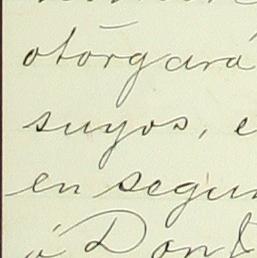 otorgará
suyos, e
en segun
á Don J